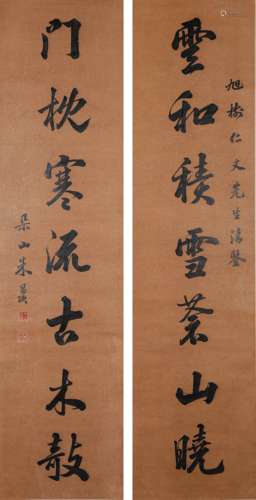 旭樹仁丈先生清鑒
雲和積雪蒼山曉
門枕寒流古木敧
朵山朱昌頤